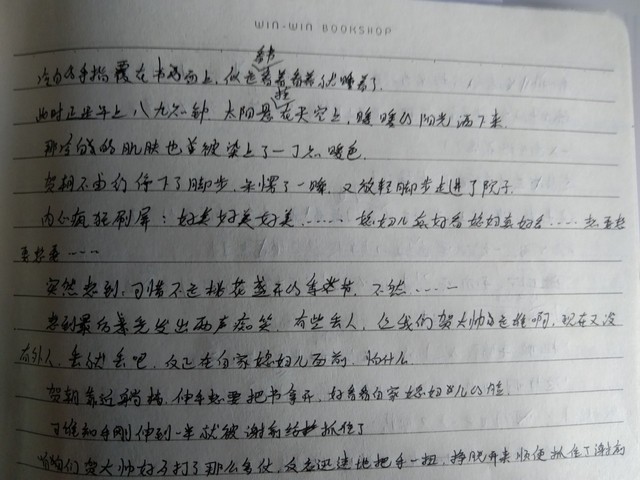 WIN-WIN BOOKSHOP
看书
冷白的手指覆在书页上,似是看着看着就睡着了.
挂
此时正是早上八九点钟 太阳悬在天空上,暖暖的阳光洒下来.
那冷白的肌肤也算被染上了一丁点暖色.
贺朝不由的停下了脚步,呆愣了一瞬.又放轻脚步走进了院子.
内心疯狂刷屏:好美好美好美……媳妇儿真好看媳妇真好看……想亲想
亲想亲……
突然想到,可惜不是桃花盛开的季节,不然……
想到最后竟是发出两声痴笑.有些丢人,但我们贺大帅的是谁啊,现在又没
有外人,丢人就丢吧,反正在自家媳妇儿面前.怕什么
贺朝靠近躺椅,伸手想要把书拿开,好看看自家媳妇儿的脸
可谁知手刚伸到一半就被谢俞给抓住了
咱们贺大帅好歹打了那么多仗,反应迅速地把手一扭,挣脱开来顺便抓住了谢俞的